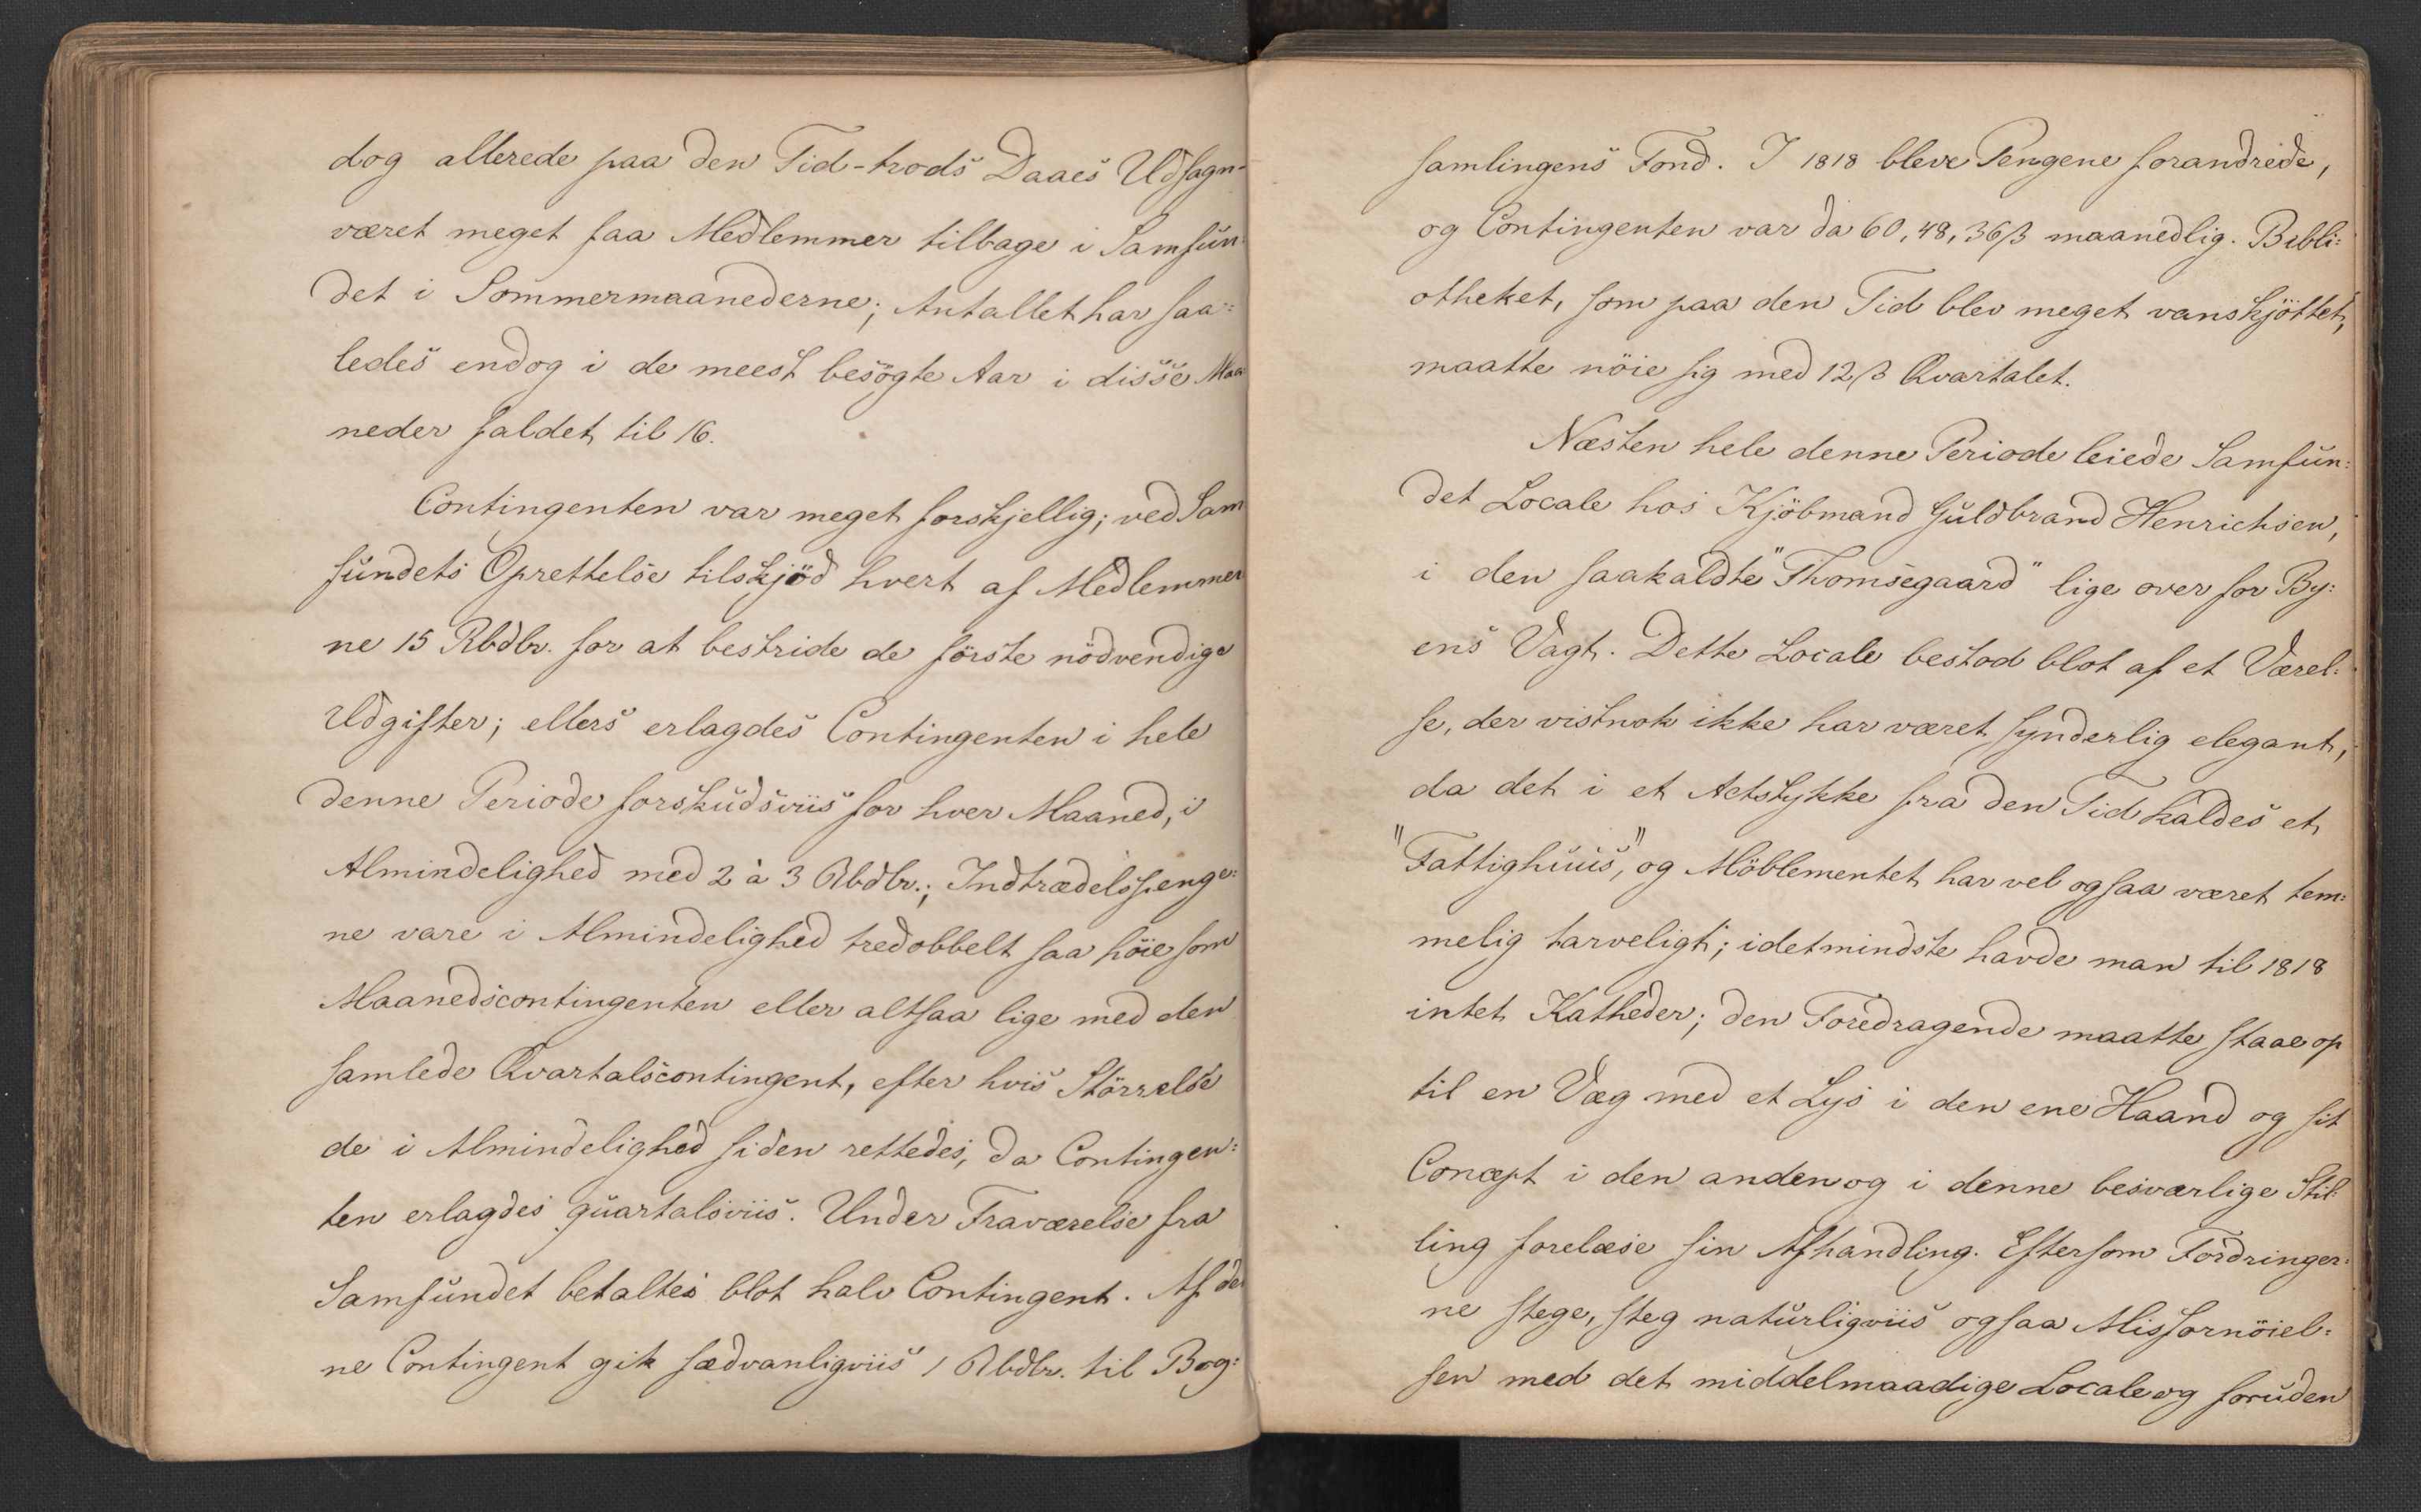 dog allerede paa den Tid - trods Daaes Udsagn -
været meget faa Medlemmer tilbage i Samfun:
det i Sommermaanederne; Antallet har saa:
ledes endog i de meest besögte Aar i disse Maa:
neder faldet til 16.
Contingenten var meget forskjellig; ved Sam
fundets Oprettelse tilskjöd hvert af Medlemmer
ne 15 Rbdlr. for at bestride de förste nödvendige
Udgifter; ellers erlagdes Contingenten i hele
denne Periode forskudsviis for hver Maaned, i
Almindelighed med 2 à 3 Rbdlr.; Indtrædelsspenge:
ne vare i Almindelighed tredobbelt saa höie som
Maanedscontingenten eller altsaa lige med den
samlede Qvartalscontingent, efter hvis Störrelse
de i Almindelighed siden rettedes, da Contingen:
ten erlagdes quartalsviis. Under Fraværelse fra
Samfundet betaltes blot halv Contingent. Af den
ne Contingent gik sædvanligviis 1 Rbdlr. til Bog:
samlingens Fond. I 1818 bleve Pengene forandrede,
og Contingenten var da 60, 48, 36 β maanedlig. Bibli:
otheket, som paa den Tid blev meget vanskjöttet,
maatte nöie sig med 12 β Qvartalet.
Næsten hele denne Periode leiede Samfun:
det Locale hos Kjöbmand Guldbrand Henrichsen,
i den saakaldte "Thomsegaard" lige over for By:
ens Vagt. Dette Locale bestod blot af et Værel:
se, der vistnok ikke har været synderlig elegant,
da det i et Actstykke fra den Tid kaldes et
"Fattighuus," og Möblementet har vel ogsaa været tem:
melig tarveligt; idetmindste havde man til 1818
intet Katheder; den Foredragende maatte staae op
til en Væg med et Lys i den ene Haand og sit
Concept i den anden og i denne besværlige Stil:
ling forelæse sin Afhandling. Eftersom Fordringer:
ne stege, steg naturligviis ogsaa Misfornöiel:
sen med det middelmaadige Locale og foruden